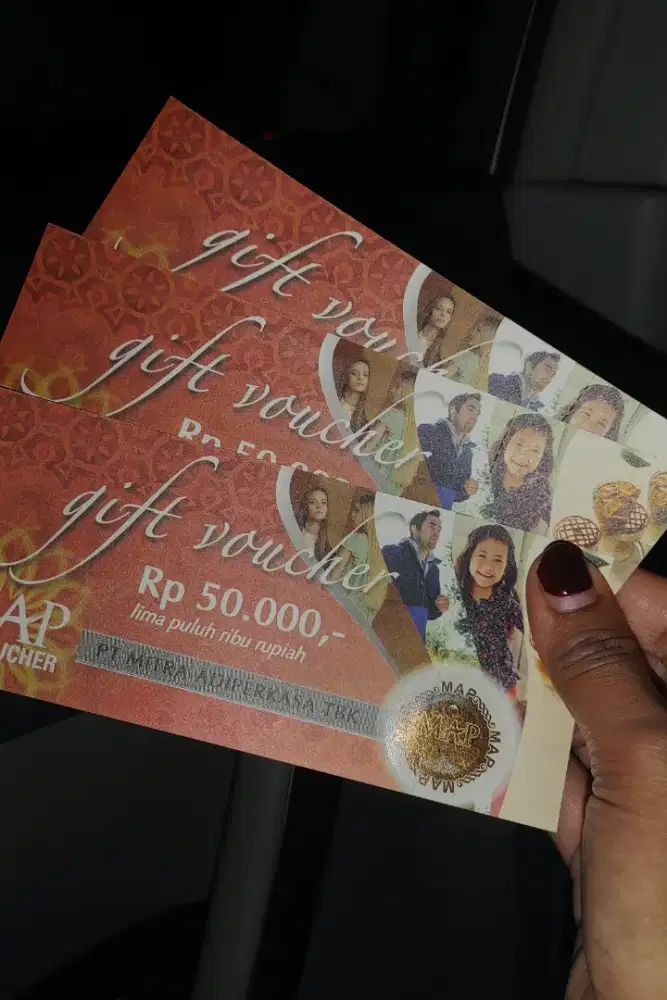 gift vouch
gift voucher
Rp 50.000
gift voucher
Rp 50.000,-
lima puluh ribu rupiah
AP
UCHER
PT MITRA ADIPERKASA TBK
MAP
MAP
MAP
MAP